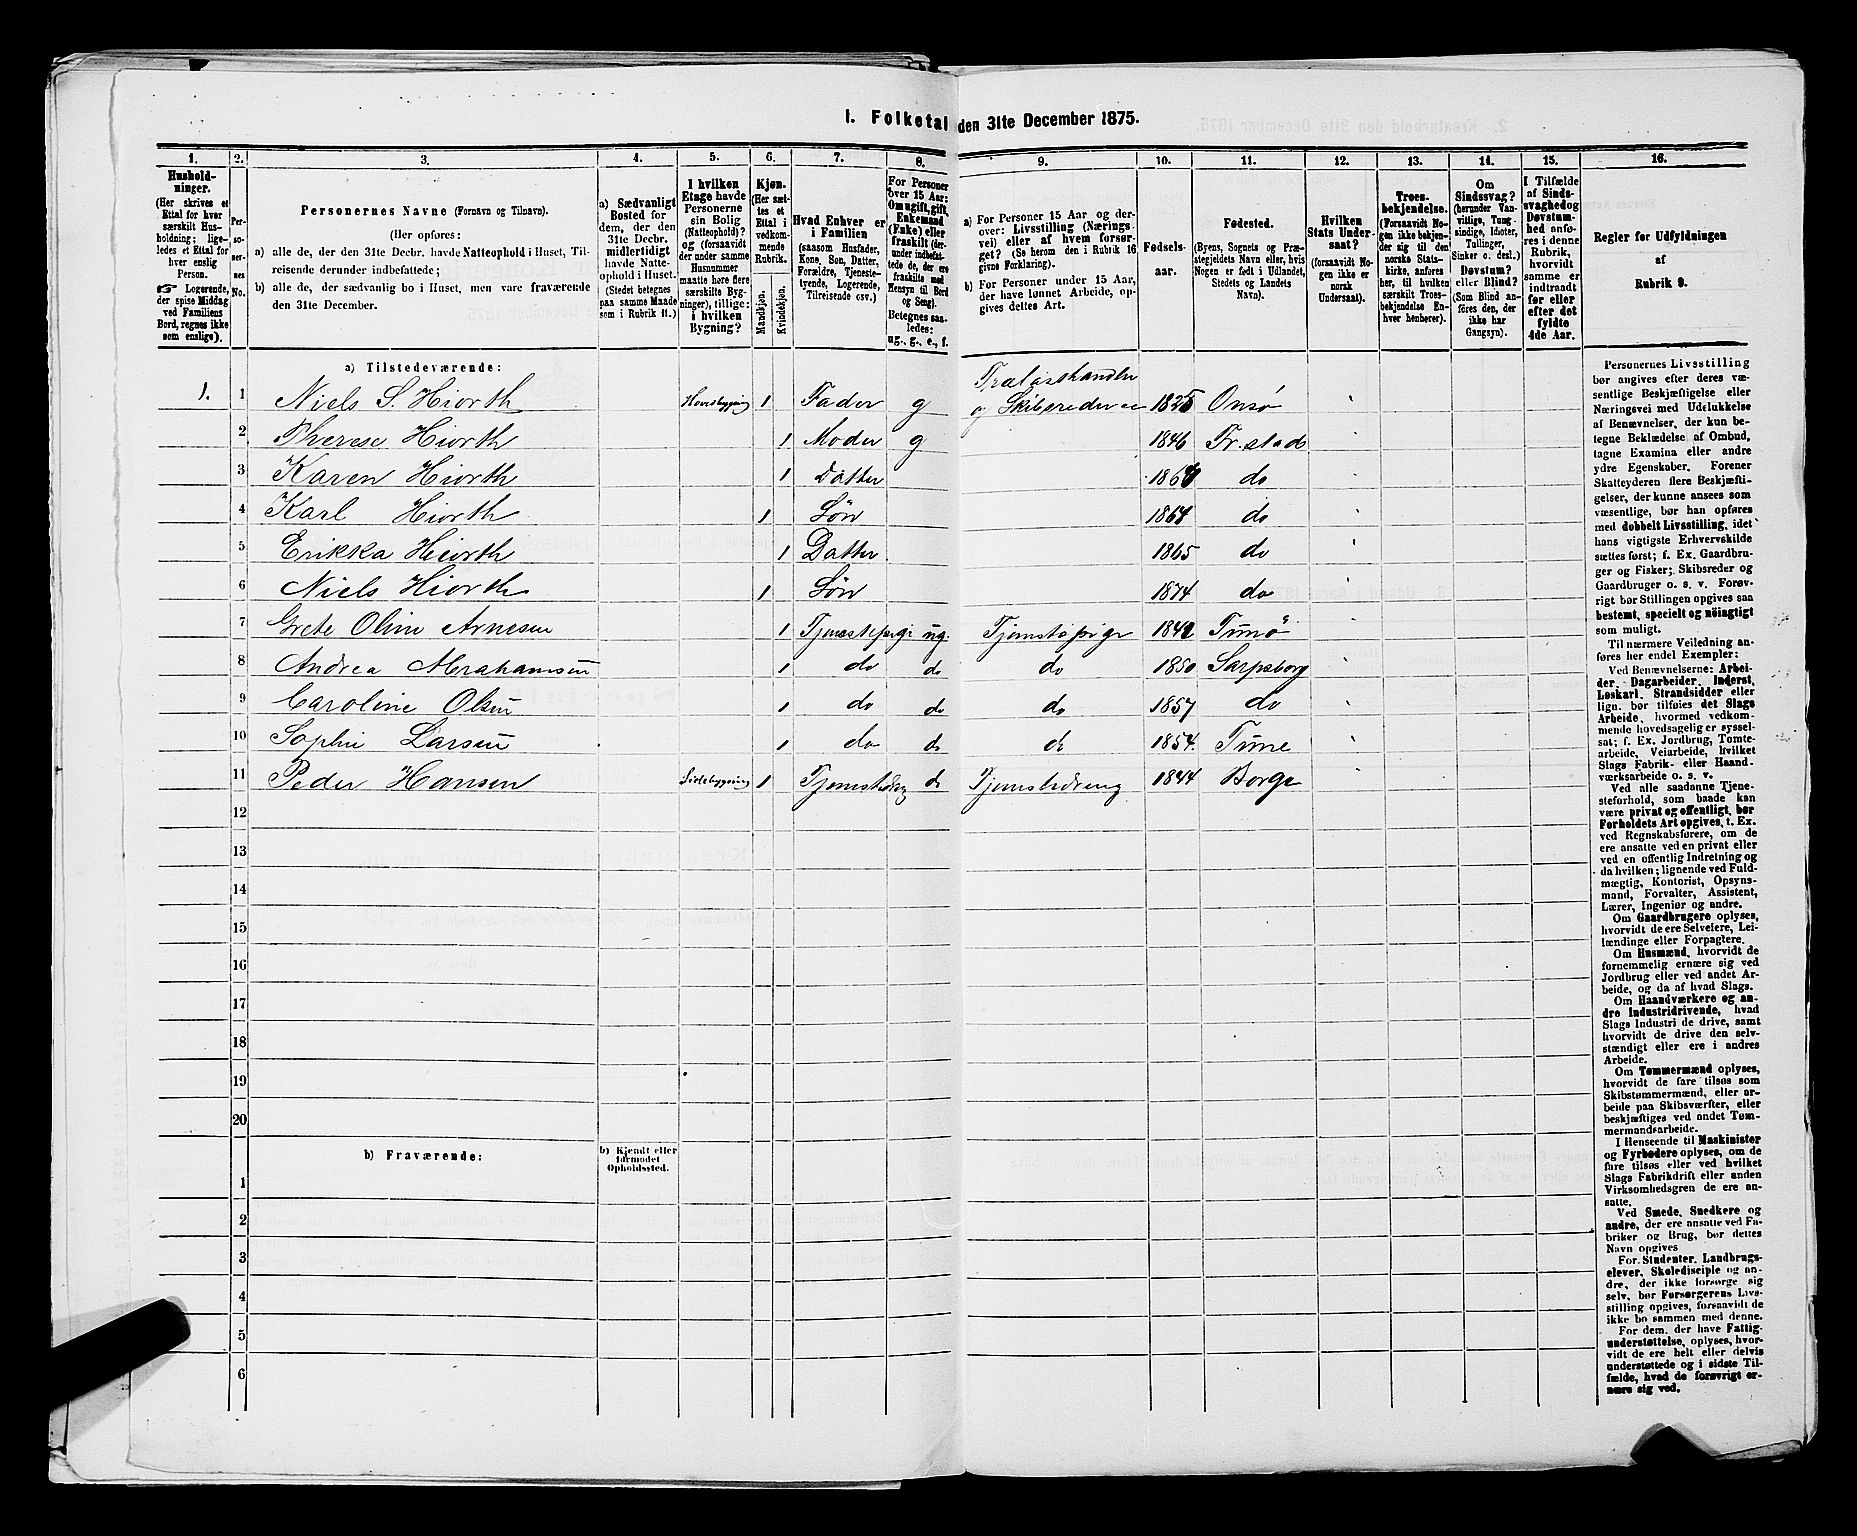 I. Folketal den 31te December 1875.
1. 2. 3. 4. 5. 6. 7. 8. 9. 10. 11. 12. 13. 14. 15. 16.
Husholdninger.
(Her skrives et Ettal for hver særskilt Husholdning; ligeledes et Ettal for hver enslig Person.
☞ Logerende, der spise Middag ved Familiens Bord, regnes ikke som enslige).
Personernes No.
Personernes Navne (Fornavn og Tilnavn).
(Her opføres:
a) alle de, der den 31te Decbr. havde Natteophold i Huset, Tilreisende derunder indbefattede;
b) alle de, der sædvanlig bo i Huset, men vare fraværende den 31te December.
a) Sædvanligt Bosted for dem, der den 31te Decbr. midlertidigt havde Natteophold i Huset. (Stedet betegnes paa samme Maade som i Rubrik 11.)
I hvilken Etage havde Personerne sin Bolig (Natteophold)? og (forsaavidt der under samme Husnummer maatte høre flere særskilte Bygninger), tillige: i hvilken Bygning?
Kjøn.
(Her sættes et Ettal i vedkommende Rubrik.
Mandkjøn.
Kvindekjøn.
Hvad Enhver er i Familien
(saasom Husfader, Kone, Søn, Datter, Forældre, Tjenestetyende, Logerende, Tilreisende osv.)
For Personer over 15 Aar: Om ugift, gift, Enkemand (Enke) eller fraskilt (derunder indbefattede de, der ere fraskilte med Hensyn til Bord og Seng).
Betegnes saaledes:
ug., g., e., f.
a) For Personer 15 Aar og derover: Livsstilling (Næringsvei) eller af hvem forsørget? (Se herom den i Rubrik 16 givne Forklaring).
b) For Personer under 15 Aar, der have lønnet Arbeide, opgives dettes Art.
Fødselsaar.
Fødested.
(Byens, Sognets og Præstegjeldets Navn eller, hvis Nogen er født i Udlandet, Stedets og Landets Navn).
Hvilken Stats Undersaat?
(forsaavidt Nogen ikke er norsk Undersaat).
Troesbekjendelse.
(Forsaavidt Nogen ikke bekjender sig til den norske Statskirke, anføres her, til hvilken særskilt Troesbekjendelse Enhver henhører).
Om Sindssvag? (herunder Vanvittige, Tungsindige, Idioter, Tullinger, Sinker o. desl.) Døvstum? eller Blind? (Som Blind anføres den, der ikke har Gangsyn).
I Tilfælde af Sindssvaghed og Døvstumhed anføres i denne Rubrik, hvorvidt samme er indtraadt før eller efter det fyldte 4de Aar.
Regler for Udfyldningen
af
Rubrik 9.
a) Tilstedeværende:
1. 1 Niels S. Hiorth Hovedbygning 1 Fader g Trælasthandler og Skibsreder 1825 Onsø
2 Therese Hiorth 1 Moder g 1846 Fr.stad
3 Karen Hiorth 1 Datter do
4 Karl Hiorth 1 Søn 1864 do
5 Erikka Hiorth 1 Datter 1865 do
6 Niels Hiorth 1 Søn 1874 do
7 Grete Oline Arnesen 1 Tjenestepige ug. Tjenstepige Tunø
8 Andrea Abrahamsen 1 do do do 1850 Sarpsborg
9 Caroline Olsen 1 do do do 1857 do
10 Sophie Larsen 1 do do do 1854. Tune
11 Peder Hansen Sidebygning 1 Tjenstedreng do Tjenstedreng 1844 Borge
12
13
14
15
16
17
18
19
20
b) Fraværende:
b) Kjendt eller formodet Opholdssted.
1
2
3
4
5
6
Personernes Livsstilling
bør angives efter deres væ-
sentlige Beskjæftigelse eller
Næringsvei med Udelukkelse
af Benævnelser, der kun be-
tegne Beklædelse af Ombud,
tagne Examina eller andre
ydre Egenskaber. Forener
Skatteyderen flere Beskjæfti-
gelser, der kunne ansees som
væsentlige, bør han opføres
med dobbelt Livsstilling, idet
hans vigtigste Erhvervskilde
sættes først; f. Ex. Gaardbru-
ger og Fisker; Skibsreder og
Gaardbruger o. s. v. Forøv-
rigt bør Stillingen opgives saa
bestemt, specielt og nöiagtigt
som muligt.
Til nærmere Veiledning an-
føres her endel Exempler:
Ved Benævnelserne: Arbei-
der, Dagarbeider, Inderst,
Løskarl, Strandsidder eller
lign. bør tilføies det Slags
Arbeide, hvormed vedkom-
mende hovedsagelig er syssel-
sat; f. Ex. Jordbrug, Tomte-
arbeide, Veiarbeide, hvilket
Slags Fabrik- eller Haand-
værksarbeide o. s. v.
Ved alle saadanne Tjene-
steforhold, som baade kan
være privat og offentligt, bør
Forholdets Art opgives, t. Ex.
ved Regnskabsførere, om de
ere ansatte ved en privat eller
ved en offentlig Indretning og
da hvilken; lignende ved Fuld-
mægtig, Kontorist, Opsyns-
mand, Forvalter, Assistent,
Lærer, Ingeniør og andre.
Om Gaardbrugere oplyses,
hvorvidt de ere Selveiere, Lei-
lændinge eller Forpagtere.
Om Husmænd, hvorvidt de
fornemmelig ernære sig ved
Jordbrug eller ved andet Ar-
beide, og da af hvad Slags.
Om Haandværkere og an-
dre Industridrivende, hvad
Slags Industri de drive, samt
hvorvidt de drive den selv-
stændigt eller ere i andres
Arbeide.
Om Tømmermænd oplyses,
hvorvidt de fare tilsøs som
Skibstømmermænd, eller ar-
beide paa Skibsværfter, eller
beskjæftiges ved andet Tøm-
mermandsarbeide.
I Henseende til Maskinister
og Fyrbødere oplyses, om de
fare tilsøs eller ved hvilket
Slags Fabrikdrift eller anden
Virksomhedsgren de ere an-
satte.
Ved Smede, Snedkere og
andre, der ere ansatte ved Fa-
briker og Brug, bør dettes
Navn opgives
For Studenter, Landbrugs-
elever, Skoledisciple og an-
dre, der ikke forsørge sig
selv, bør Forsørgerens Livs-
stilling opgives, forsaavidt de
ikke bo sammen med denne.
For dem, der have Fattig-
understøttelse, oplyses, hvor-
vidt de ere helt eller delvis
understøttede og i sidste Til-
fælde, hvad de forøvrigt er-
nære sig ved.